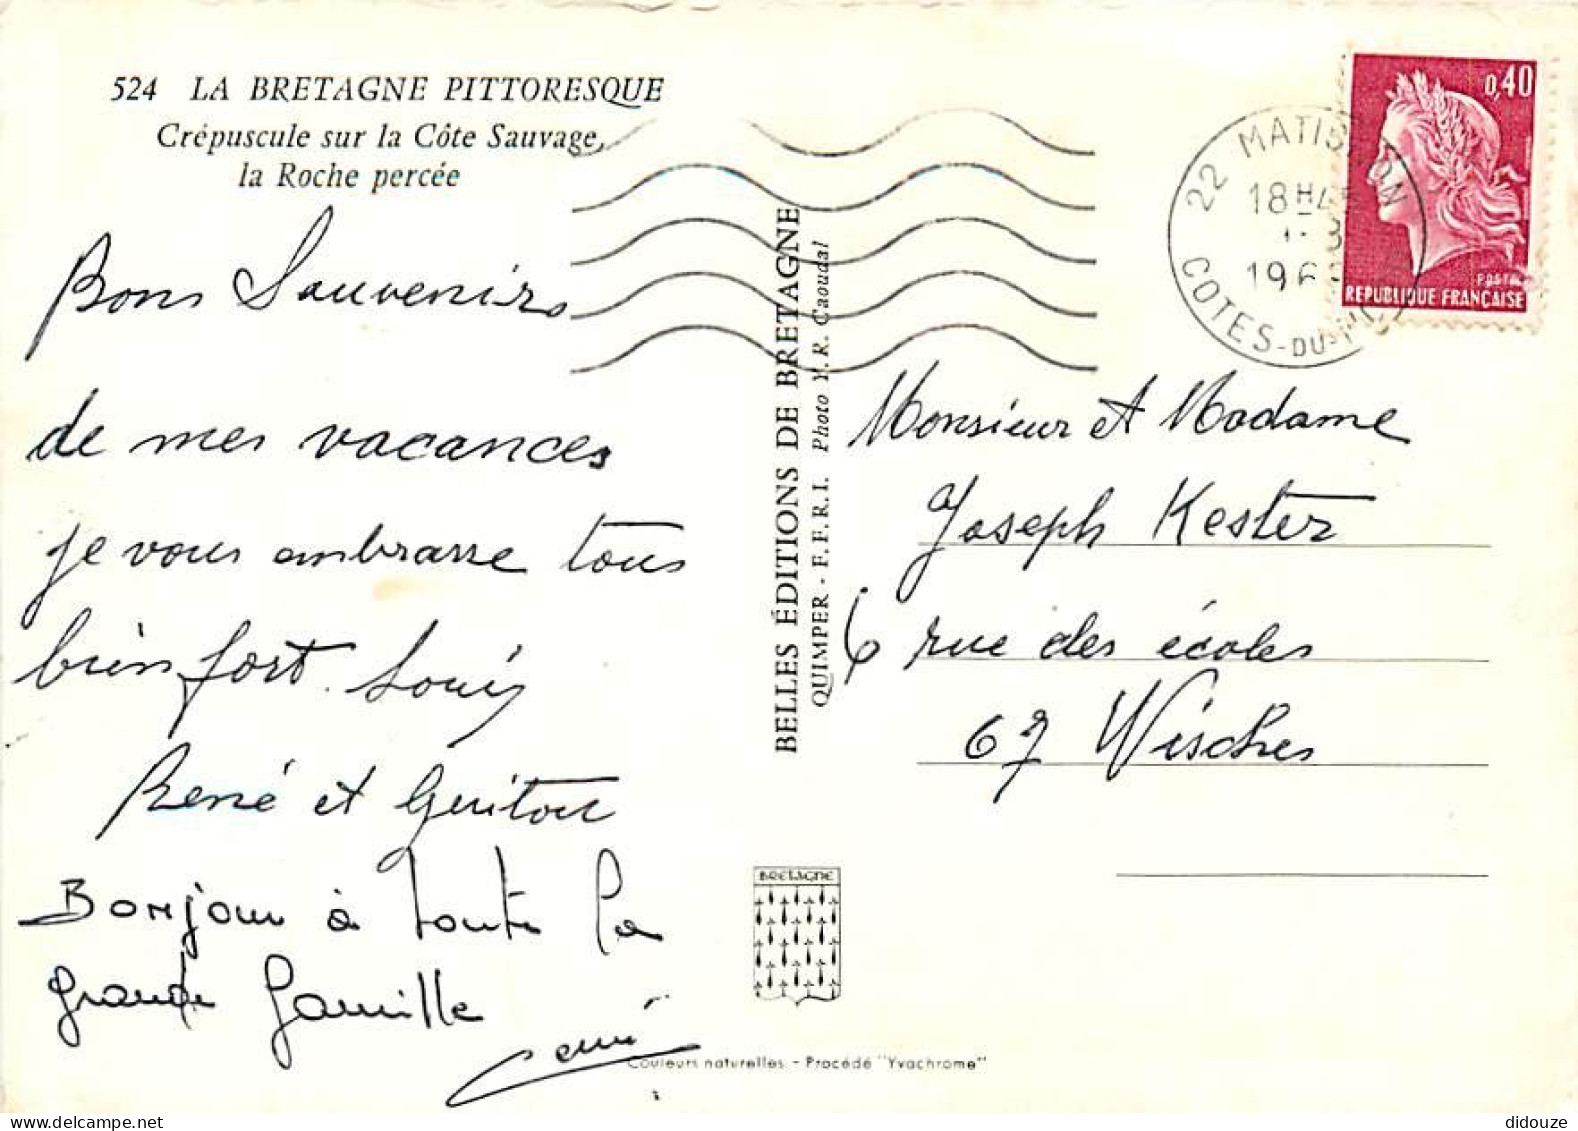 524 LA BRETAGNE PITTORESQUE
Crépuscule sur la Côte Sauvage,
la Roche percée
Bons Souvenirs
de mes vacances
je vous embrasse tous
bien fort. Louis
René et Guitou
Bonjour à toute la
grande famille
BELLES ÉDITIONS DE BRETAGNE
QUIMPER - F.F.R.I. Photo Y.R. Caoudal
BRETAGNE
Couleurs naturelles - Procédé "Yvachrome"
22 MATIGNON
18H4
196
COTES-DU-N
0,40
POSTES
REPUBLIQUE FRANÇAISE
Monsieur et Madame
Joseph Kester
6 rue des écoles
67 Wisches
didouze